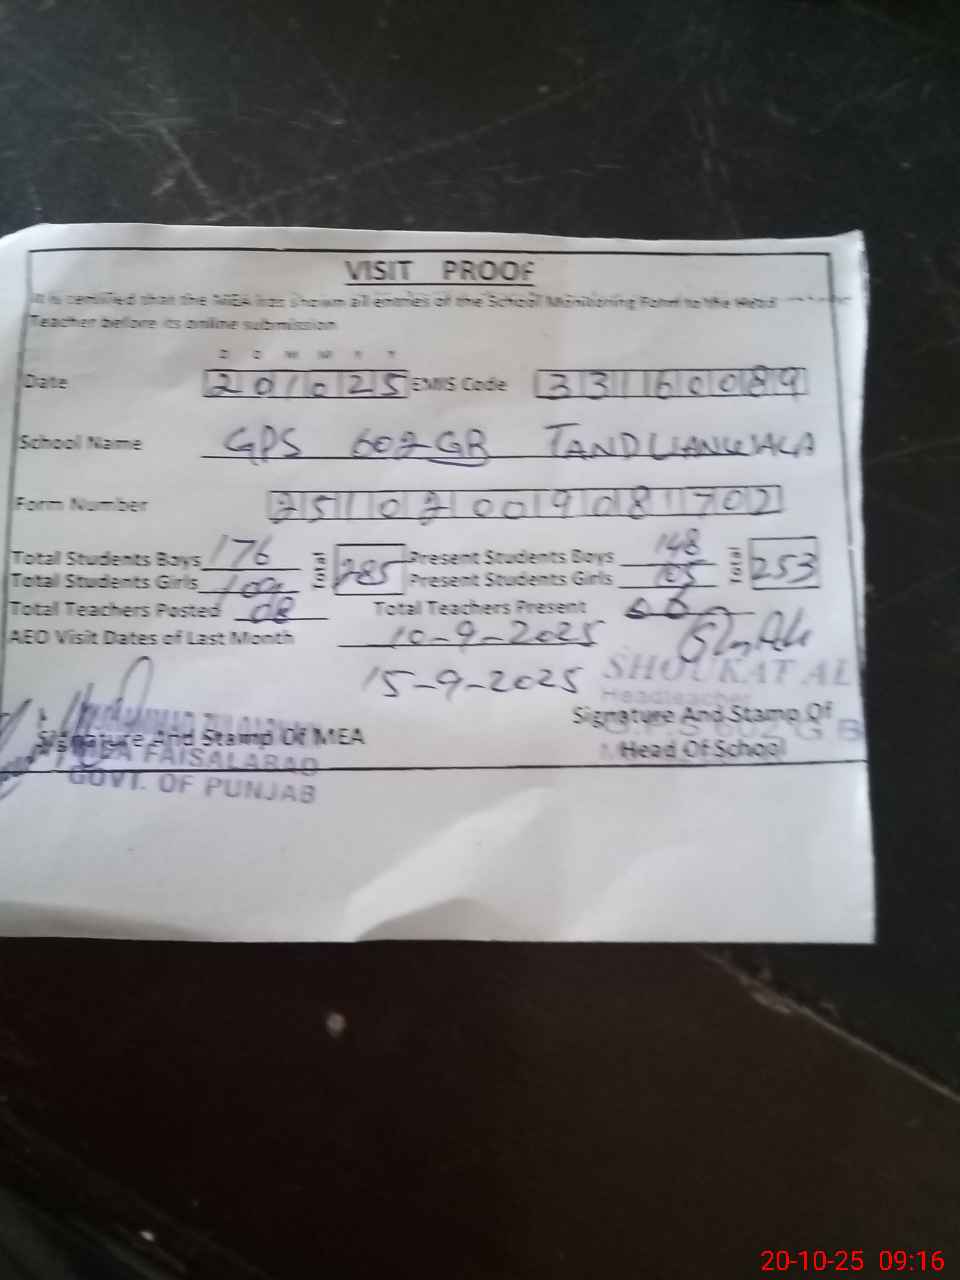 VISIT PROOF
It is certified that the MEA has shown all entries of the School Monitoring Form to the Head
Teacher before its online submission
D D M M Y Y
Date 201025 EMIS Code 33160089
School Name GPS 602 GB TANDLIANWALA
Form Number 25102009081702
Total Students Boys 176 Total 285 Present Students Boys 148 Total 253
Total Students Girls 109 Present Students Girls 105
Total Teachers Posted 08 Total Teachers Present
AEO Visit Dates of Last Month 10-9-2025
15-9-2025
SHOUKAT AL
Headteacher
Signature And Stamp Of MEA Signature And Stamp Of
G.P.S 602 G B
Head Of School
FAISALABAD
GOVT. OF PUNJAB
20-10-25 09:16